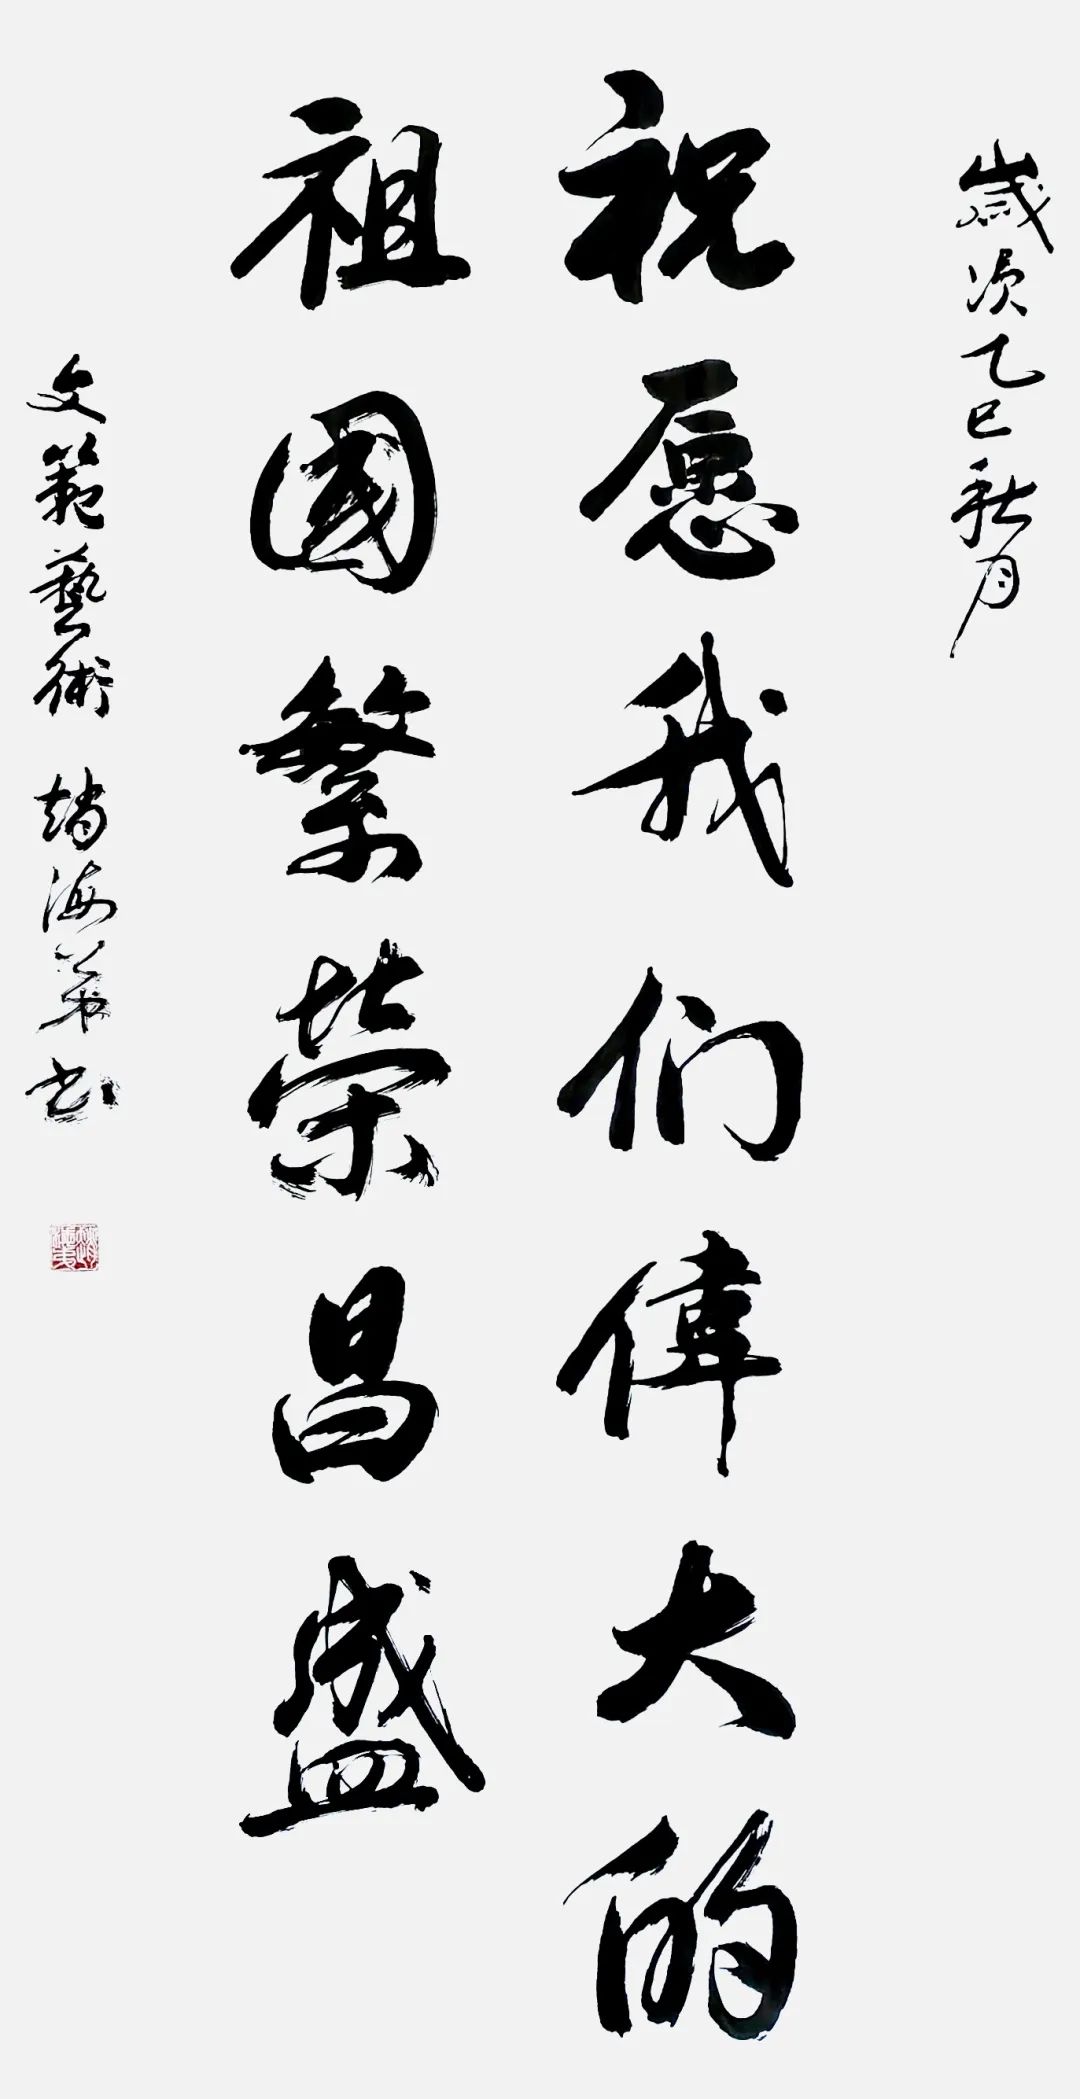 歲次乙巳秋月
祝愿我们偉大的
祖國繁荣昌盛
文範藝術 趙海弟书